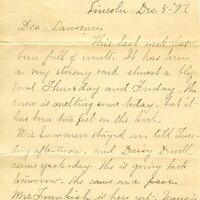 Lincoln - Dec 5-'97.
Dear Lawrence,
This last week has
been full of
It has been
a very stormy week almost a bliz-
zard Thursday and Friday. The
snow is melting some today, but it
has been two feet on the level.
Mrs. stayed on till Tues-
day afternoon, and Daisy
came yesterday. She is going back
tomorrow. She came on a pass.
Mrs. is here yet.